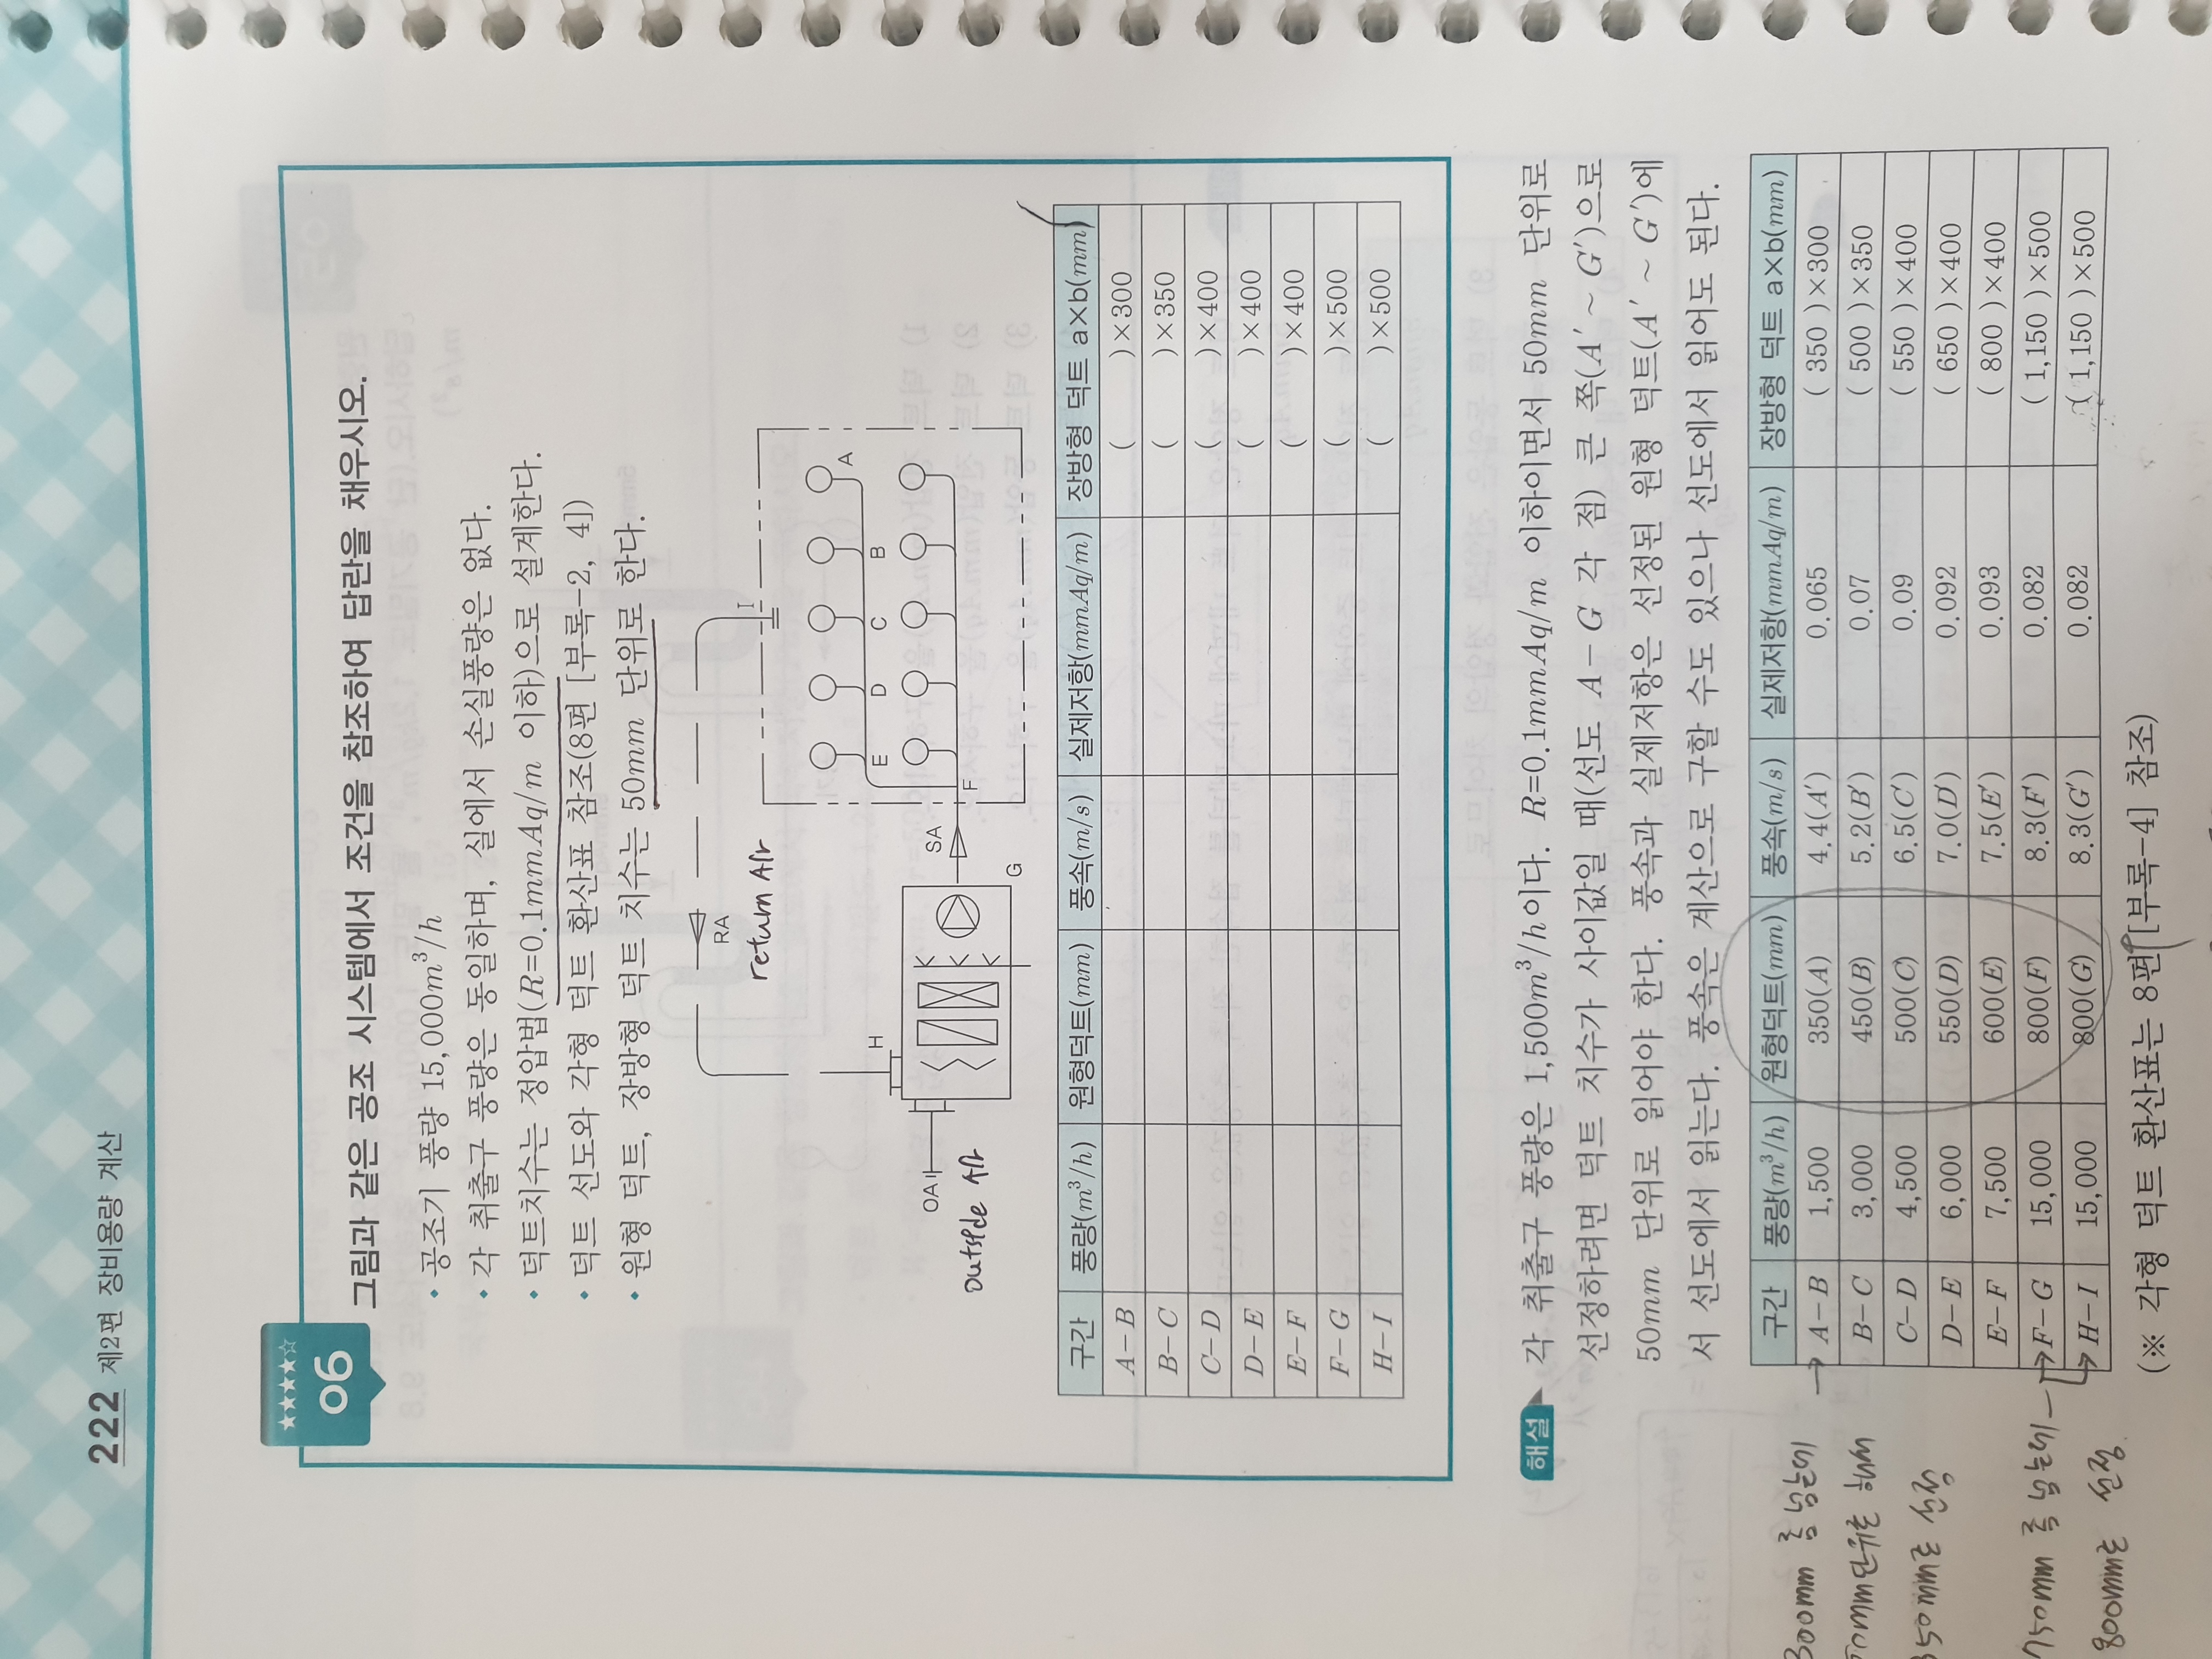 222 제2편 장비용량 계산
★★★★☆
06
그림과 같은 공조 시스템에서 조건을 참조하여 답란을 채우시오.
• 공조기 풍량 15,000m³/h
• 각 취출구 풍량은 동일하며, 실에서 손실풍량은 없다.
• 덕트치수는 정압법(R=0.1mmAq/m 이하)으로 설계한다.
• 덕트 선도와 각형 덕트 환산표 참조(8편 [부록-2, 4])
• 원형 덕트, 장방형 덕트 치수는 50mm 단위로 한다.
RA
return Air
I
H
OA
outside Air
SA
G
F
E D C B A
구간 풍량(m³/h) 원형덕트(mm) 풍속(m/s) 실제저항(mmAq/m) 장방형 덕트 a×b(mm)
A-B ( )×300
B-C ( )×350
C-D ( )×400
D-E ( )×400
E-F ( )×400
F-G ( )×500
H-I ( )×500
해설 각 취출구 풍량은 1,500m³/h이다. R=0.1mmAq/m 이하이면서 50mm 단위로
선정하려면 덕트 치수가 사이값일 때(선도 A-G 각 점) 큰 쪽(A′~G′)으로
50mm 단위로 읽어야 한다. 풍속과 실제저항은 선정된 원형 덕트(A′~G′)에
서 선도에서 읽는다. 풍속은 계산으로 구할 수도 있으나 선도에서 읽어도 된다.
구간 풍량(m³/h) 원형덕트(mm) 풍속(m/s) 실제저항(mmAq/m) 장방형 덕트 a×b(mm)
A-B 1,500 350(A) 4.4(A′) 0.065 ( 350 )×300
B-C 3,000 450(B) 5.2(B′) 0.07 ( 500 )×350
C-D 4,500 500(C) 6.5(C′) 0.09 ( 550 )×400
D-E 6,000 550(D) 7.0(D′) 0.092 ( 650 )×400
E-F 7,500 600(E) 7.5(E′) 0.093 ( 800 )×400
F-G 15,000 800(F) 8.3(F′) 0.082 ( 1,150 )×500
H-I 15,000 800(G) 8.3(G′) 0.082 ( 1,150 )×500
(※ 각형 덕트 환산표는 8편 [부록-4] 참조)
300mm 좀 넘는데
50mm단위로 해서
350mm로 선정
750mm 좀 넘는데
800mm로 선정.